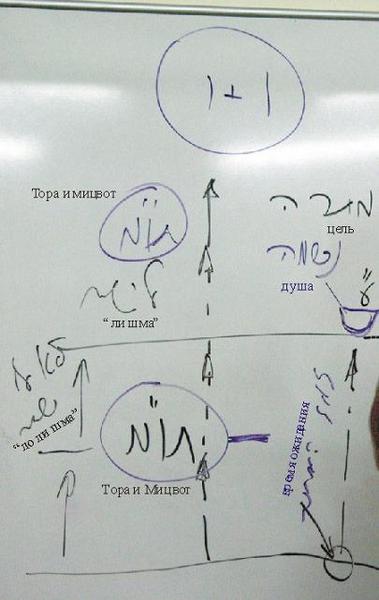 1 + 1
Тора и мицвот
תו"מ
מטרה
цель
נשמה
душа
לשמה
“ли шма”
לא
לשמה
“ло ли шма”
תו"מ
Тора и Мицвот
время ожидания
זמן